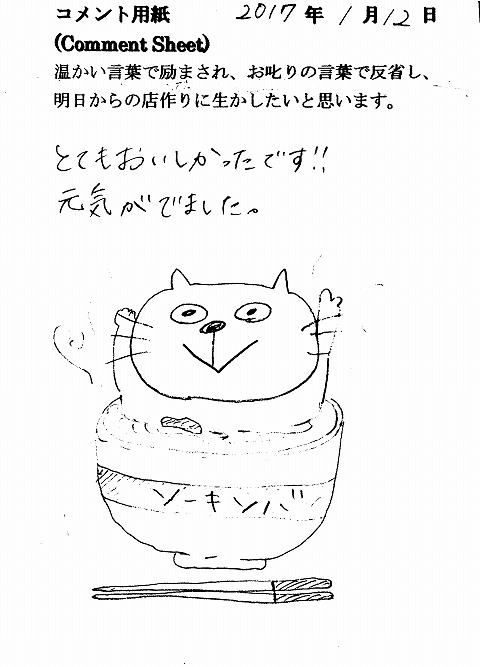 コメント用紙 2017年1月12日
(Comment Sheet)
温かい言葉で励まされ、お叱りの言葉で反省し、
明日からの店作りに生かしたいと思います。
とてもおいしかったです!!
元気がでました。
ソーキソバ